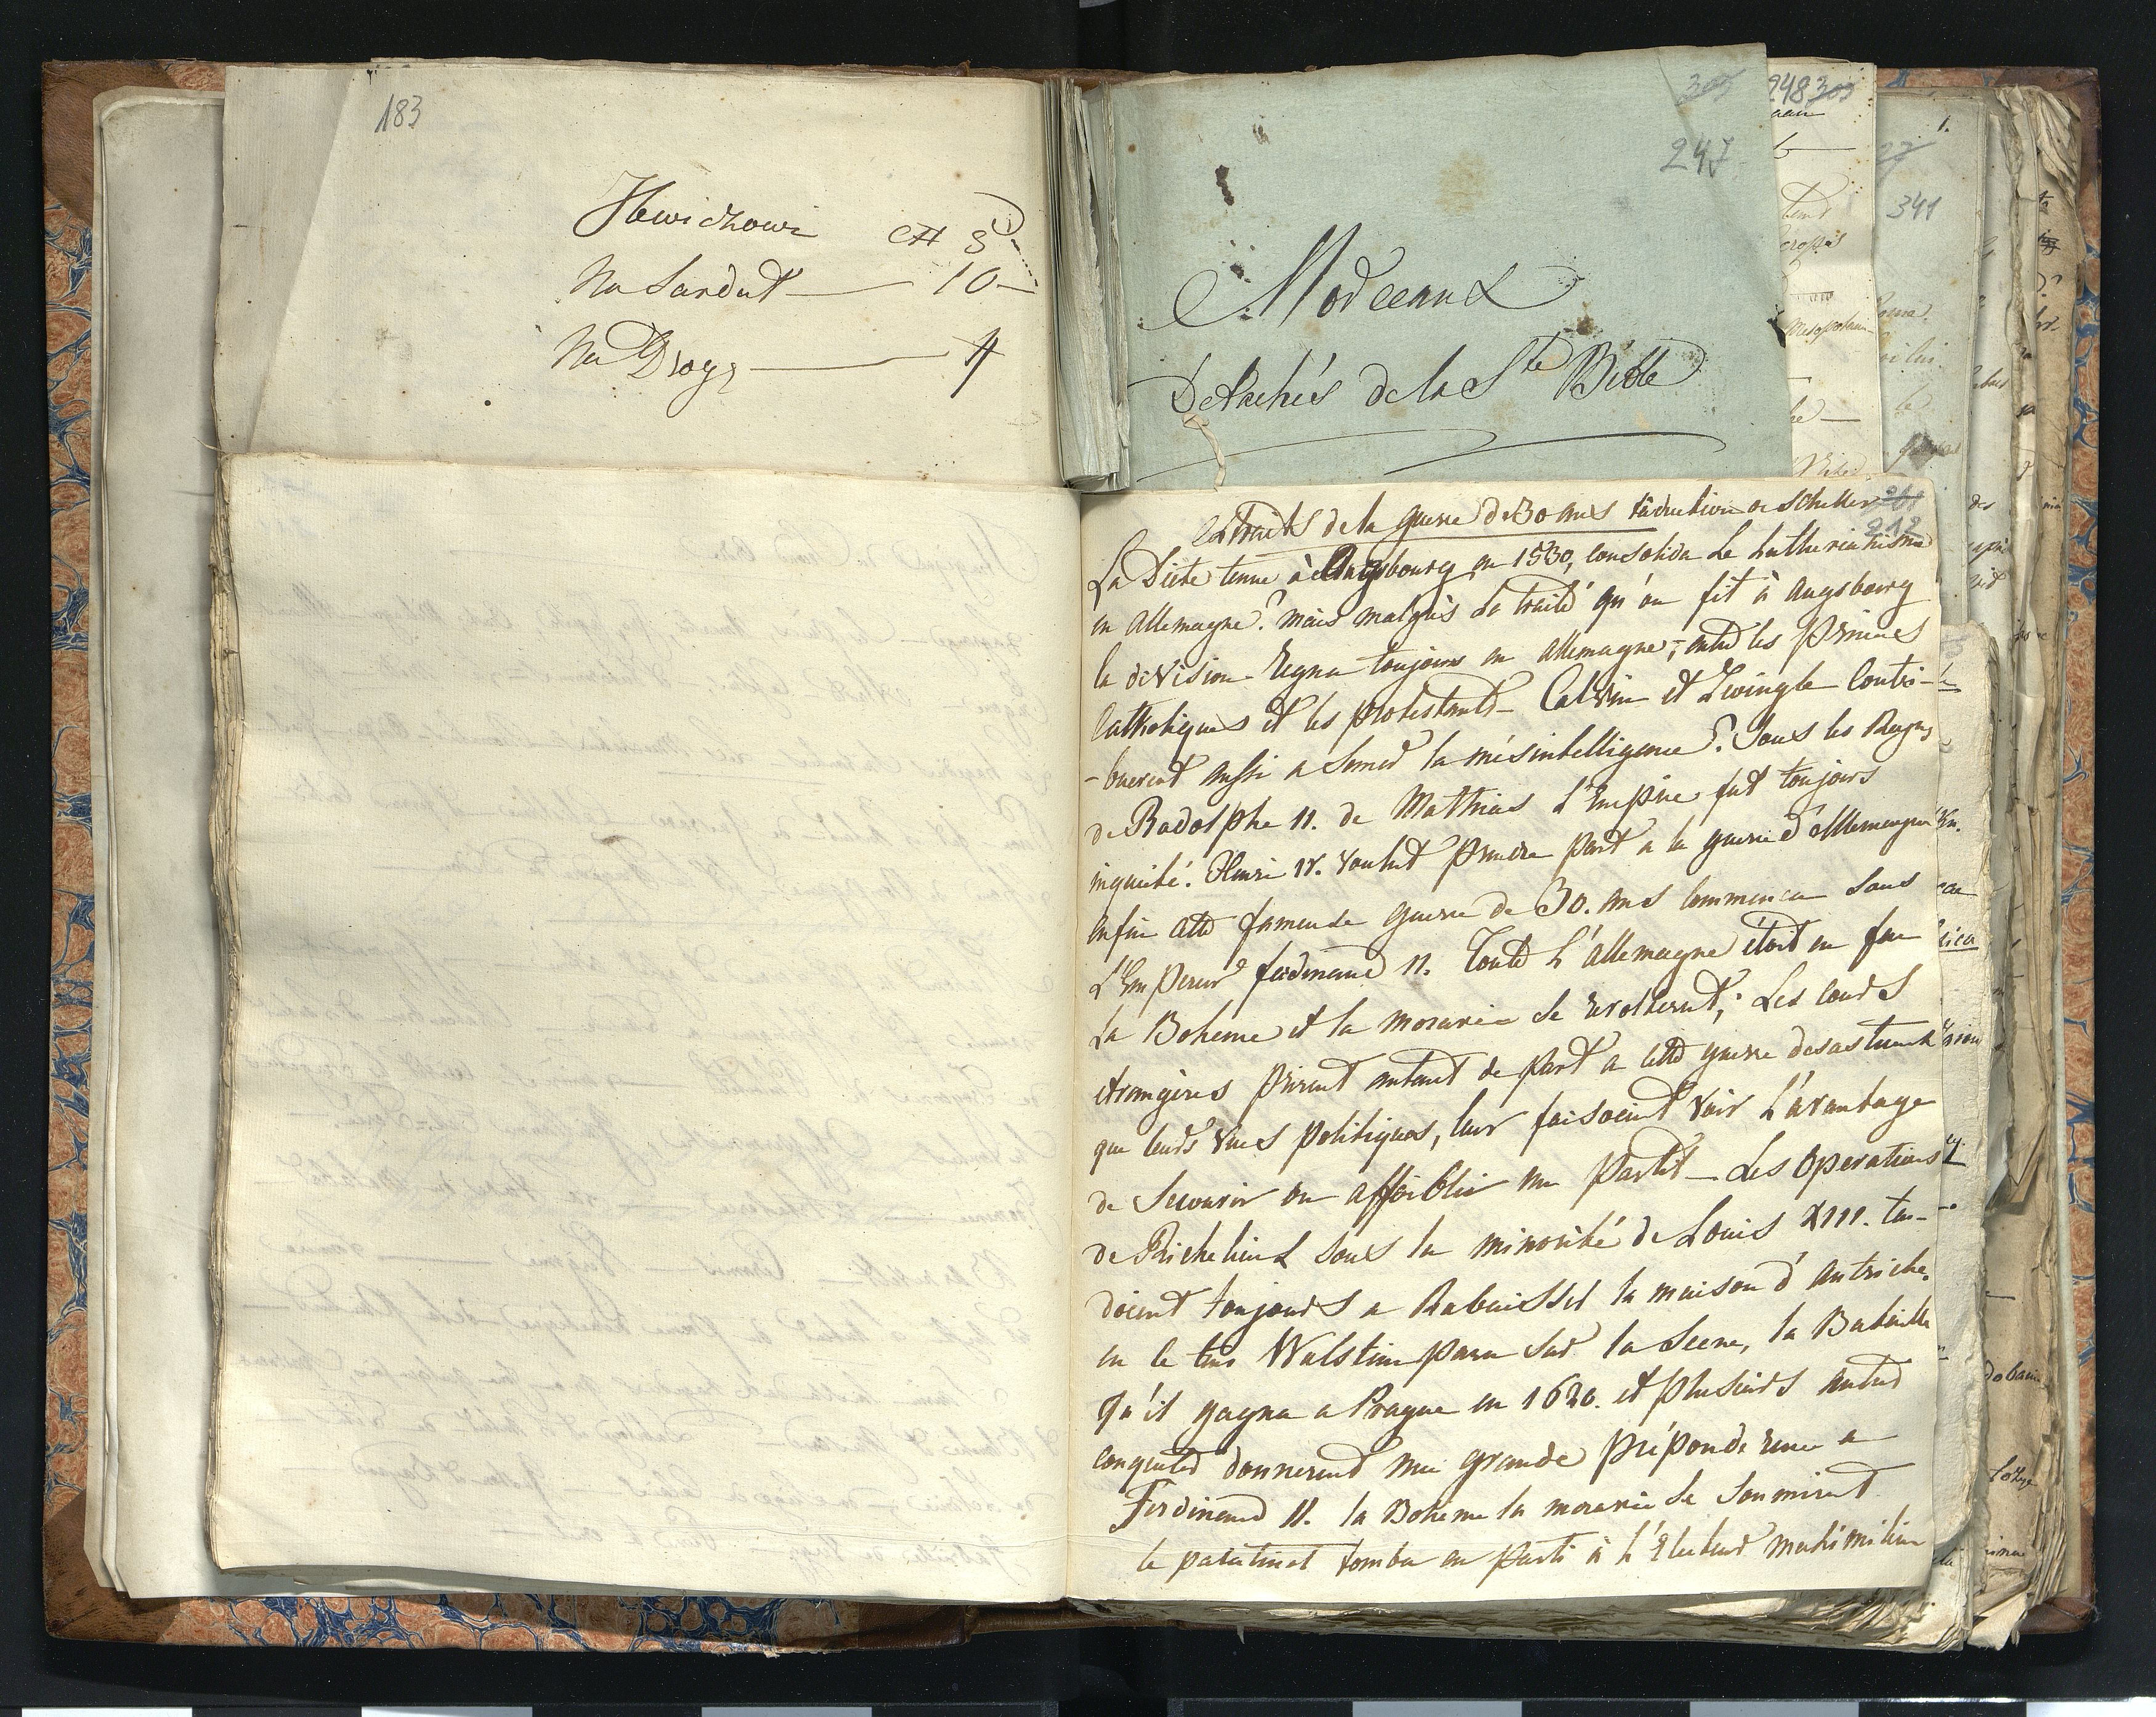 183
# 5
Na Sandut — 10 —
Na Drogę — 4
303
247
Morceaux
Détachés de la Ste Bible
248 303
341
Extraits de la guerre de 30 ans traduction de Schiller 261
212
La Diete tenue à Augsbourg en 1530, consolida le Lutherianisme
en Allemagne. mais malgrés le traité qu'on fit à Augsbourg
la division regna toujours en Allemagne, entre les Princes
Catholiques et les protestants — Calvin et Zwingle Contri-
-buerent aussi a semer la mésintelligence. Sous les Regnes
de Rodolphe II. de Mathias L'Empire fut toujours
inquieté. Henri IV. voulut prendre part a la guerre d'Allemagne
enfin cette fameuse guerre de 30. ans commença sous
L'Empereur ferdinand II. Toute L'Allemagne étoit en feu
La Boheme et la moravie se revolterent; Les cours
etrangères prirent autant de part a cette guerre desastreuse
que leurs vues politiques, leur faisoient voir L'avantage
de secourir ou affoiblir un partit — Les operations
de Richelieu sous la minorité de Louis XIII. ten-
doient toujours a Rabaisser la maison d'autriche.
en ce tems Walstin paru sur la scene, la Bataille
qu'il gagna a Prague en 1620. et plusieurs autres
conquetes donnerent une grande préponderence a
Ferdinand II. la Boheme la moravie se soumirent
le palatinat tomba en parti à L'Electeur maximilien